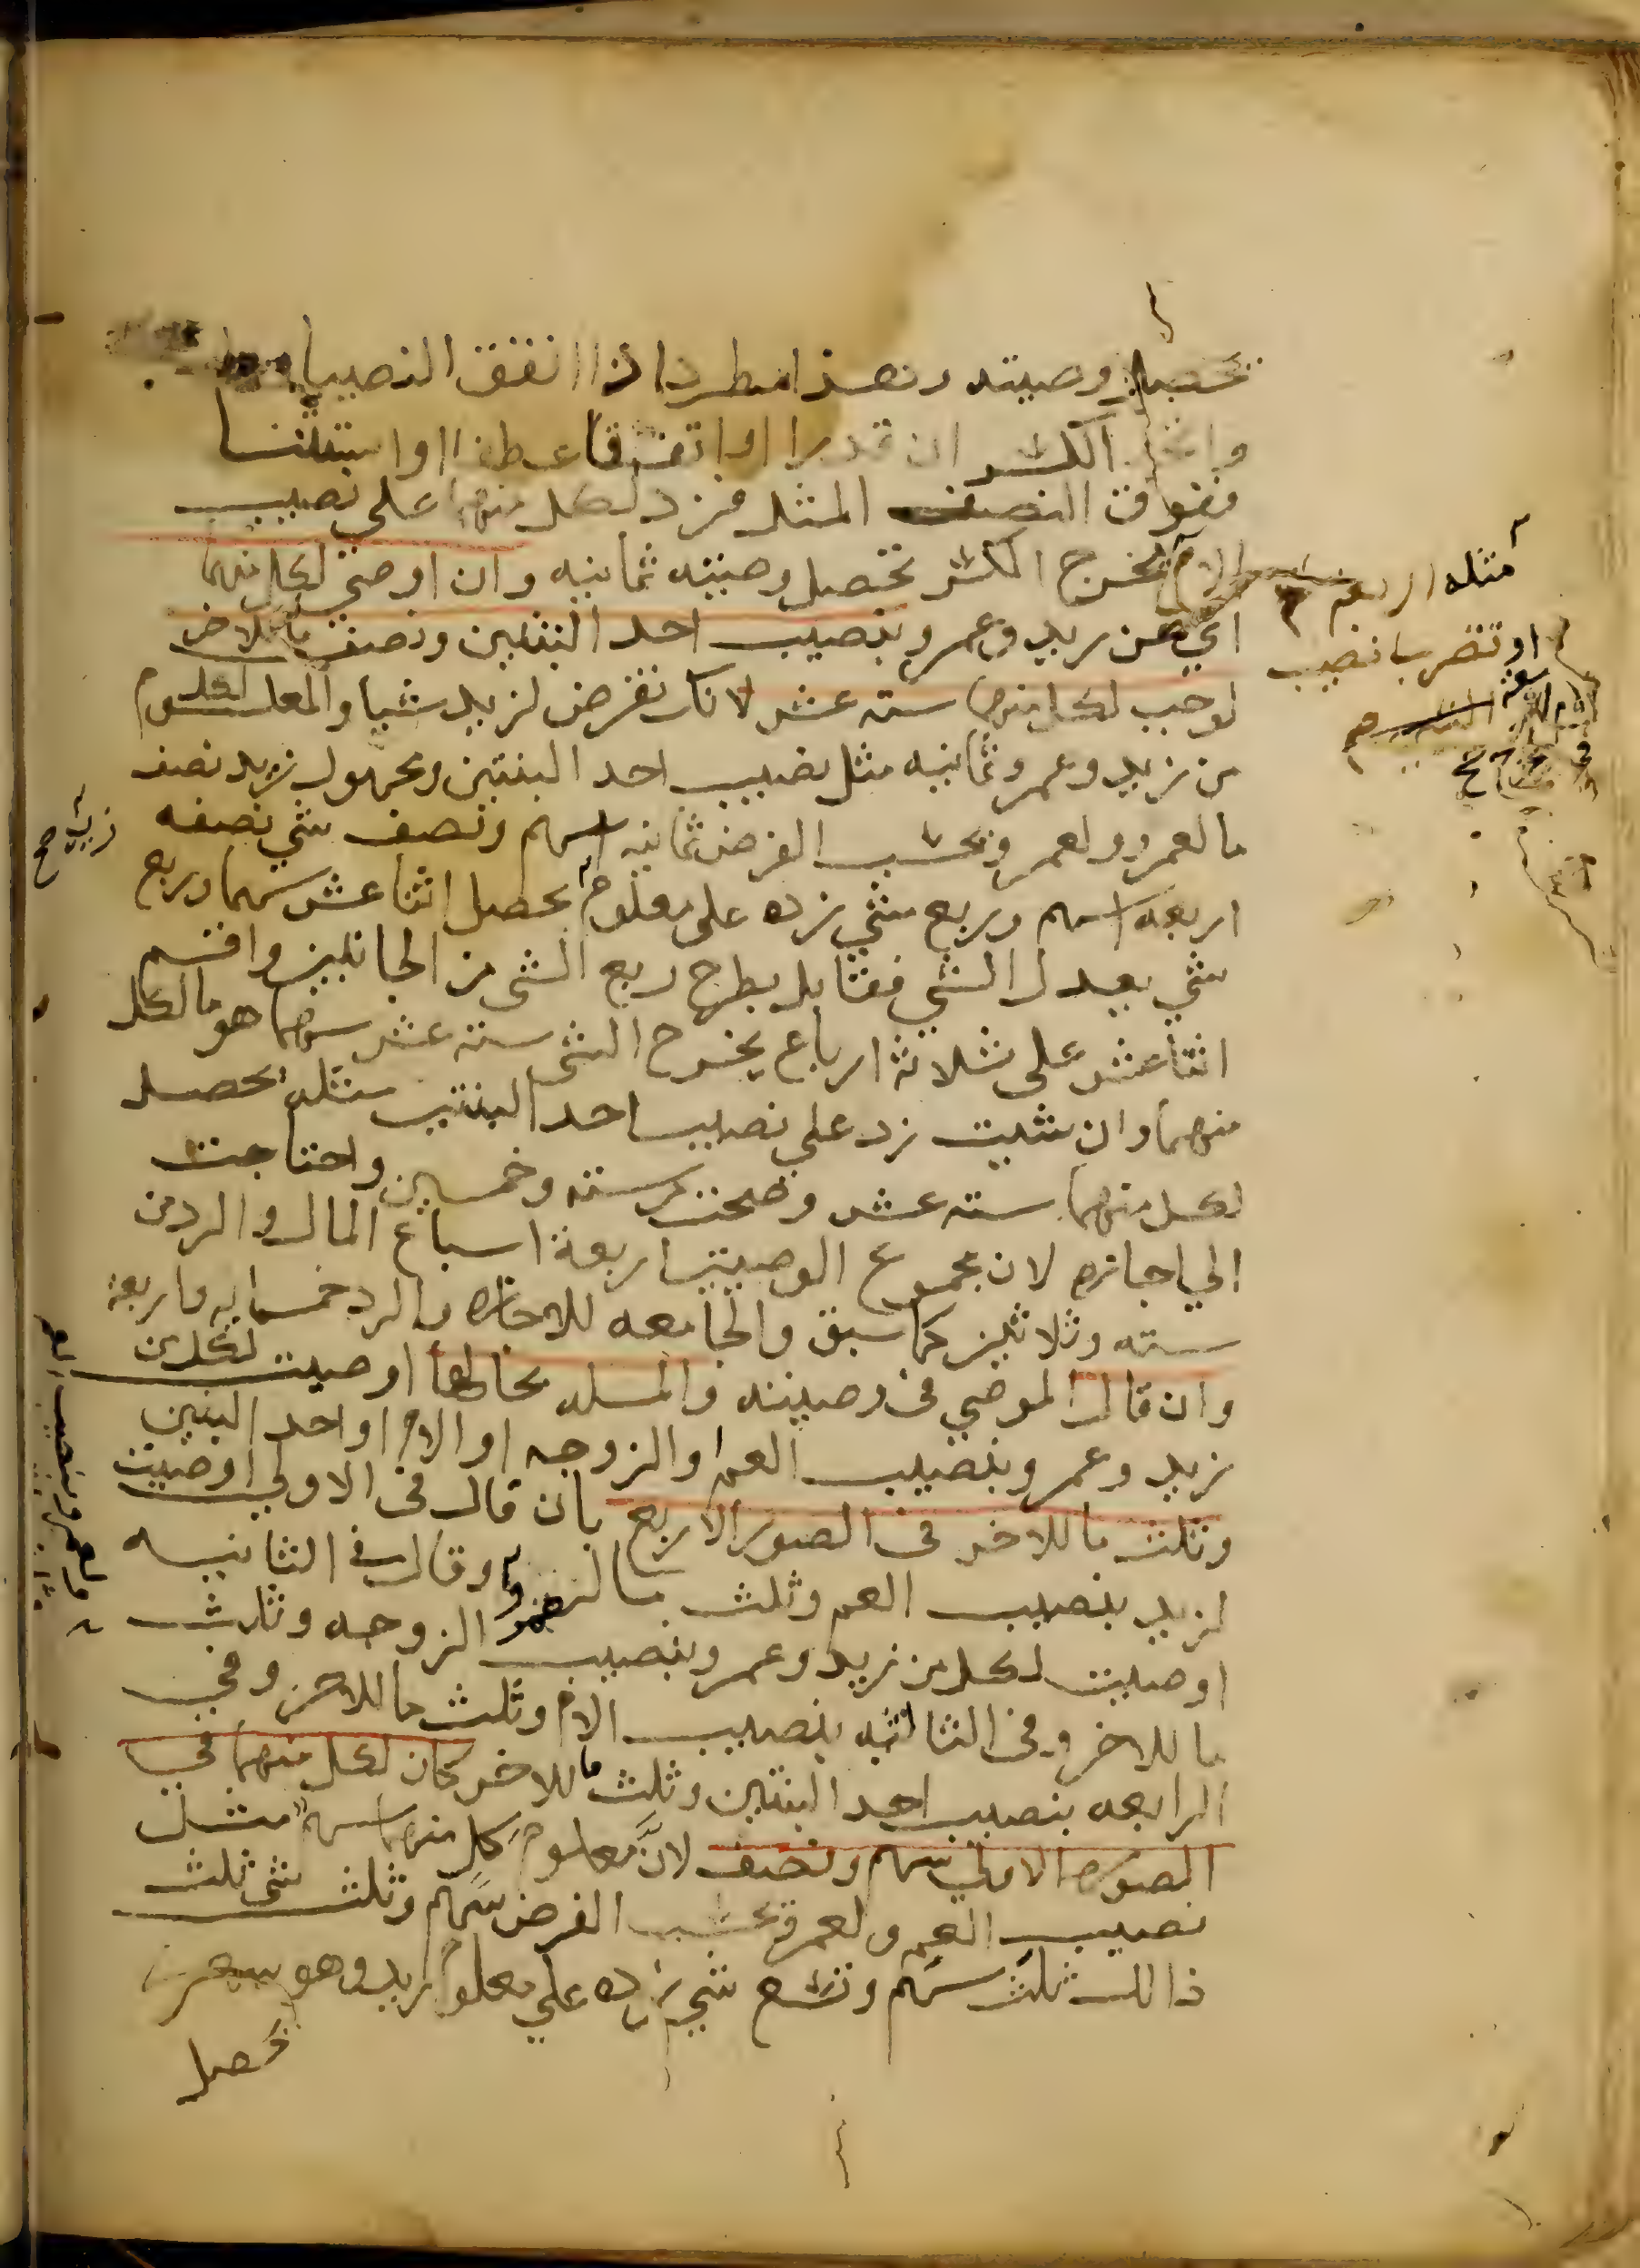 تحصل وصيته وهذا مطرد اذا اتفق النصيبان
واتحد الكسر ان قدرا او اتفقا عطفا او استثنا
ففوق النصف المثل فزد لكل منهما علي نصيب
الام لمخرج الكسر تحصل وصيته ثمانيه وان اوصي لكل منهما
اي من زيد وعمرو بنصيب احد البنتين ونصف ما للاخر
لوجب لكل منهما سته عشر لانك تفرض لزيد شيا والمعلوم لكل
من زيد وعمرو ثمانيه مثل نصيب احد البنتين ومجهول زيد نصف
ما لعمرو ولعمرو بحسب الفرض ثمانيه اسهم ونصف شي نصفه
اربعه اسهم وربع شي زده علي معلوم يحصل اثنا عشر سهما وربع
شي يعدل الشي فقابل بطرح ربع الشي من الجانبين واقسم
اثنا عشر علي ثلاثة ارباع يخرج الشي سته عشر سهما هو ما لكل
منهما وان شيت زد علي نصيب احد البنتين مثله يحصل
لكل منهما سته عشر وصحت من سته وخمسين واحتاجت
الي اجازه لان مجموع الوصيتين اربعة اسباع المال والرد من
سته وثلاثين كما سبق والجامعه للاجازه والرد خمسمايه واربعة
وان قال الموصي في وصيته والمسله بحالها اوصيت لكل من
زيد وعمرو بنصيب العم او الزوجه او الام او احد البنتين
وثلث ما للاخر في الصور الاربع بان قال في الاولي اوصيت
لزيد بنصيب العم وثلث ما لعمرو وقال في الثانيه
اوصيت لكل من زيد وعمرو بنصيب الزوجه وثلث
ما للاخر وفي الثالثه بنصيب الام وثلث ما للاخر وفي
الرابعه بنصيب احد البنتين وثلث ما للاخر كان لكل منهما في
الصوره الاولي سهم ونصف لان معلوم كل منهما سهم مثل
نصيب العم ولعمرو بحسب الفرض سهم وثلث شي ثلث
ذالك ثلث سهم وتسع شي زده علي معلوم زيد وهو سهم
تحصل
مثله اربعة
او تضرب نصيب
زيد صح